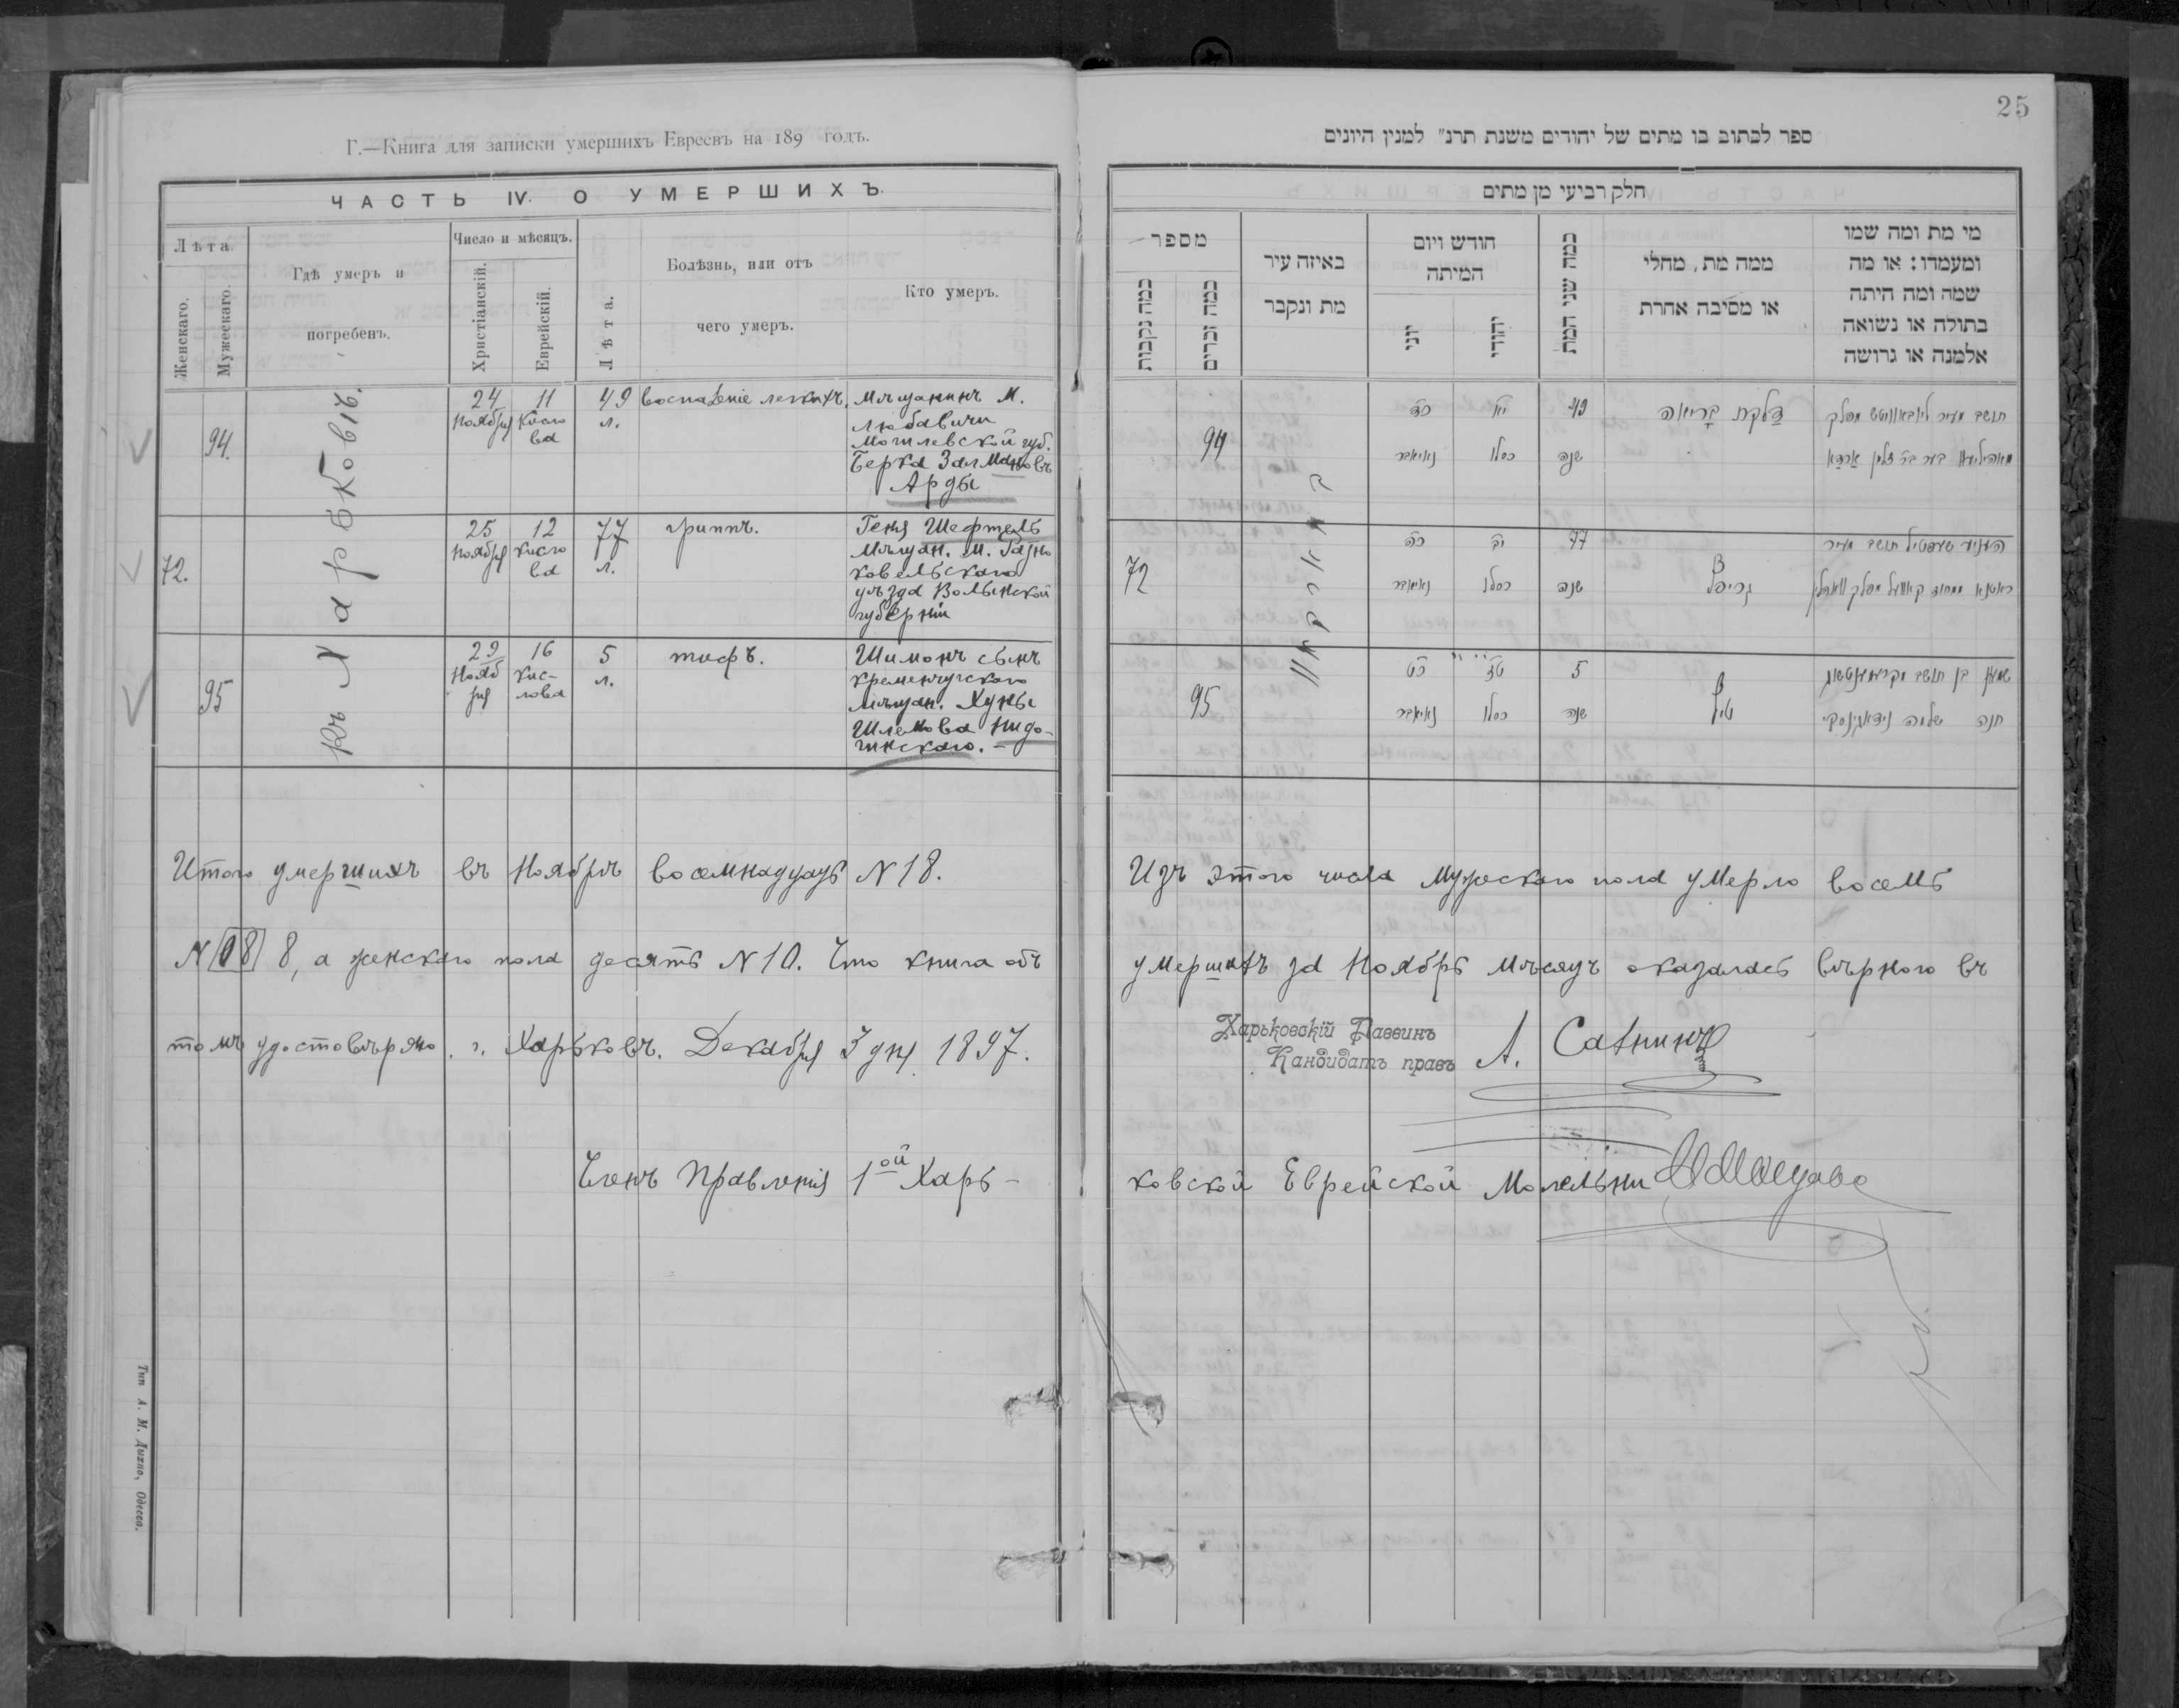 25
Г.—Книга для записки умершихъ Евреевъ на 189 годъ.
ЧАСТЬ IV. О УМЕРШИХЪ.
Лѣта.
Женскаго.
Мужескаго.
Гдѣ умеръ и
погребенъ.
Число и мѣсяцъ.
Христіанскій.
Еврейскій.
Лѣта.
Болѣзнь, или отъ
чего умеръ.
Кто умеръ.
Въ Харьковѣ.
94.
24 Ноября
11 Кисло
ва
49
л.
воспаленіе легкихъ.
Мѣщанинъ М.
Любавичи
Могилевской губ.
Берка Залмановъ
Арды
72.
25 Ноября
12 Кисло
ва
77
л.
гриппъ.
Геня Шефтель
Мѣщан. м. Ратно
Ковельскаго
уѣзда Волынской
губерніи
95
29 Нояб
ря
16 Кис-
лова
5
л.
тифъ.
Шимонъ сынъ
Кременчугскаго
Мѣщан. Хуны
Шлемова Нидо-
гинскаго. –
Итого умершихъ въ Ноябрѣ восемнадцать N 18.
N 18 8, а женскаго пола десять N 10. Что книга объ
томъ удостовѣряю. г. Харьковъ. Декабря 3 дня 1897.
Членъ Правленія 1ой Харь-
ספר לכתוב בו מתים של יהודים משנת תרנ״ למנין היונים
חלק רביעי מן מתים
מספר
כמה נקבות
כמה זכרים
באיזה עיר
מת ונקבר
חודש ויום
המיתה
יוני
יהודי
כמה שני המת
ממה מת, מחלי
או מסיבה אחרת
מי מת ומה שמו
ומעמדו: או מה
שמה ומה היתה
בתולה או נשואה
אלמנה או גרושה
94
כד
נאיאבר
יא
כסלו
49
שנה
דלקת הריאה
72
כה
נאיאבר
יב
כסלו
77
שנה
95
כט
נאיאבר
טז
כסלו
5
שנה
Изъ этого числа мужескаго пола умерло восемь
умершихъ за Ноябрь мѣсяцъ оказалась вѣрного въ
Харьковскій Раввинъ
Кандидатъ правъ
ковской Еврейской Молельни
Тип А. М. Дыхно, Одесса.